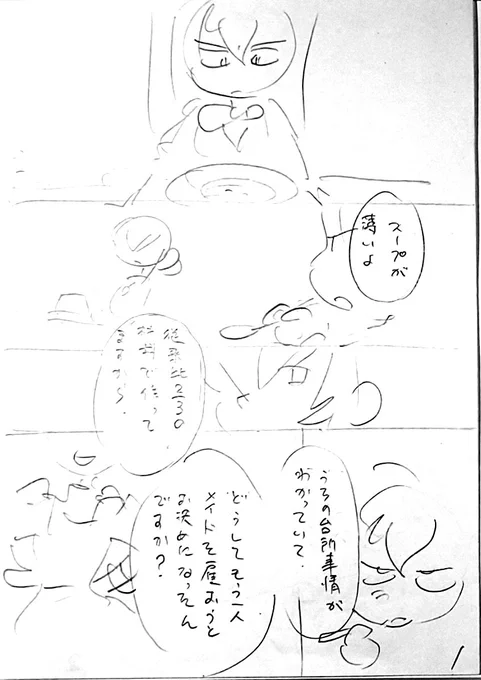 スープが
薄いよ
従来比230
材料で作って
ますから.
うちの台所事情が
わかっていて.
どうしてもう一人
メイドを雇おうと
お決めになったん
ですか?
1